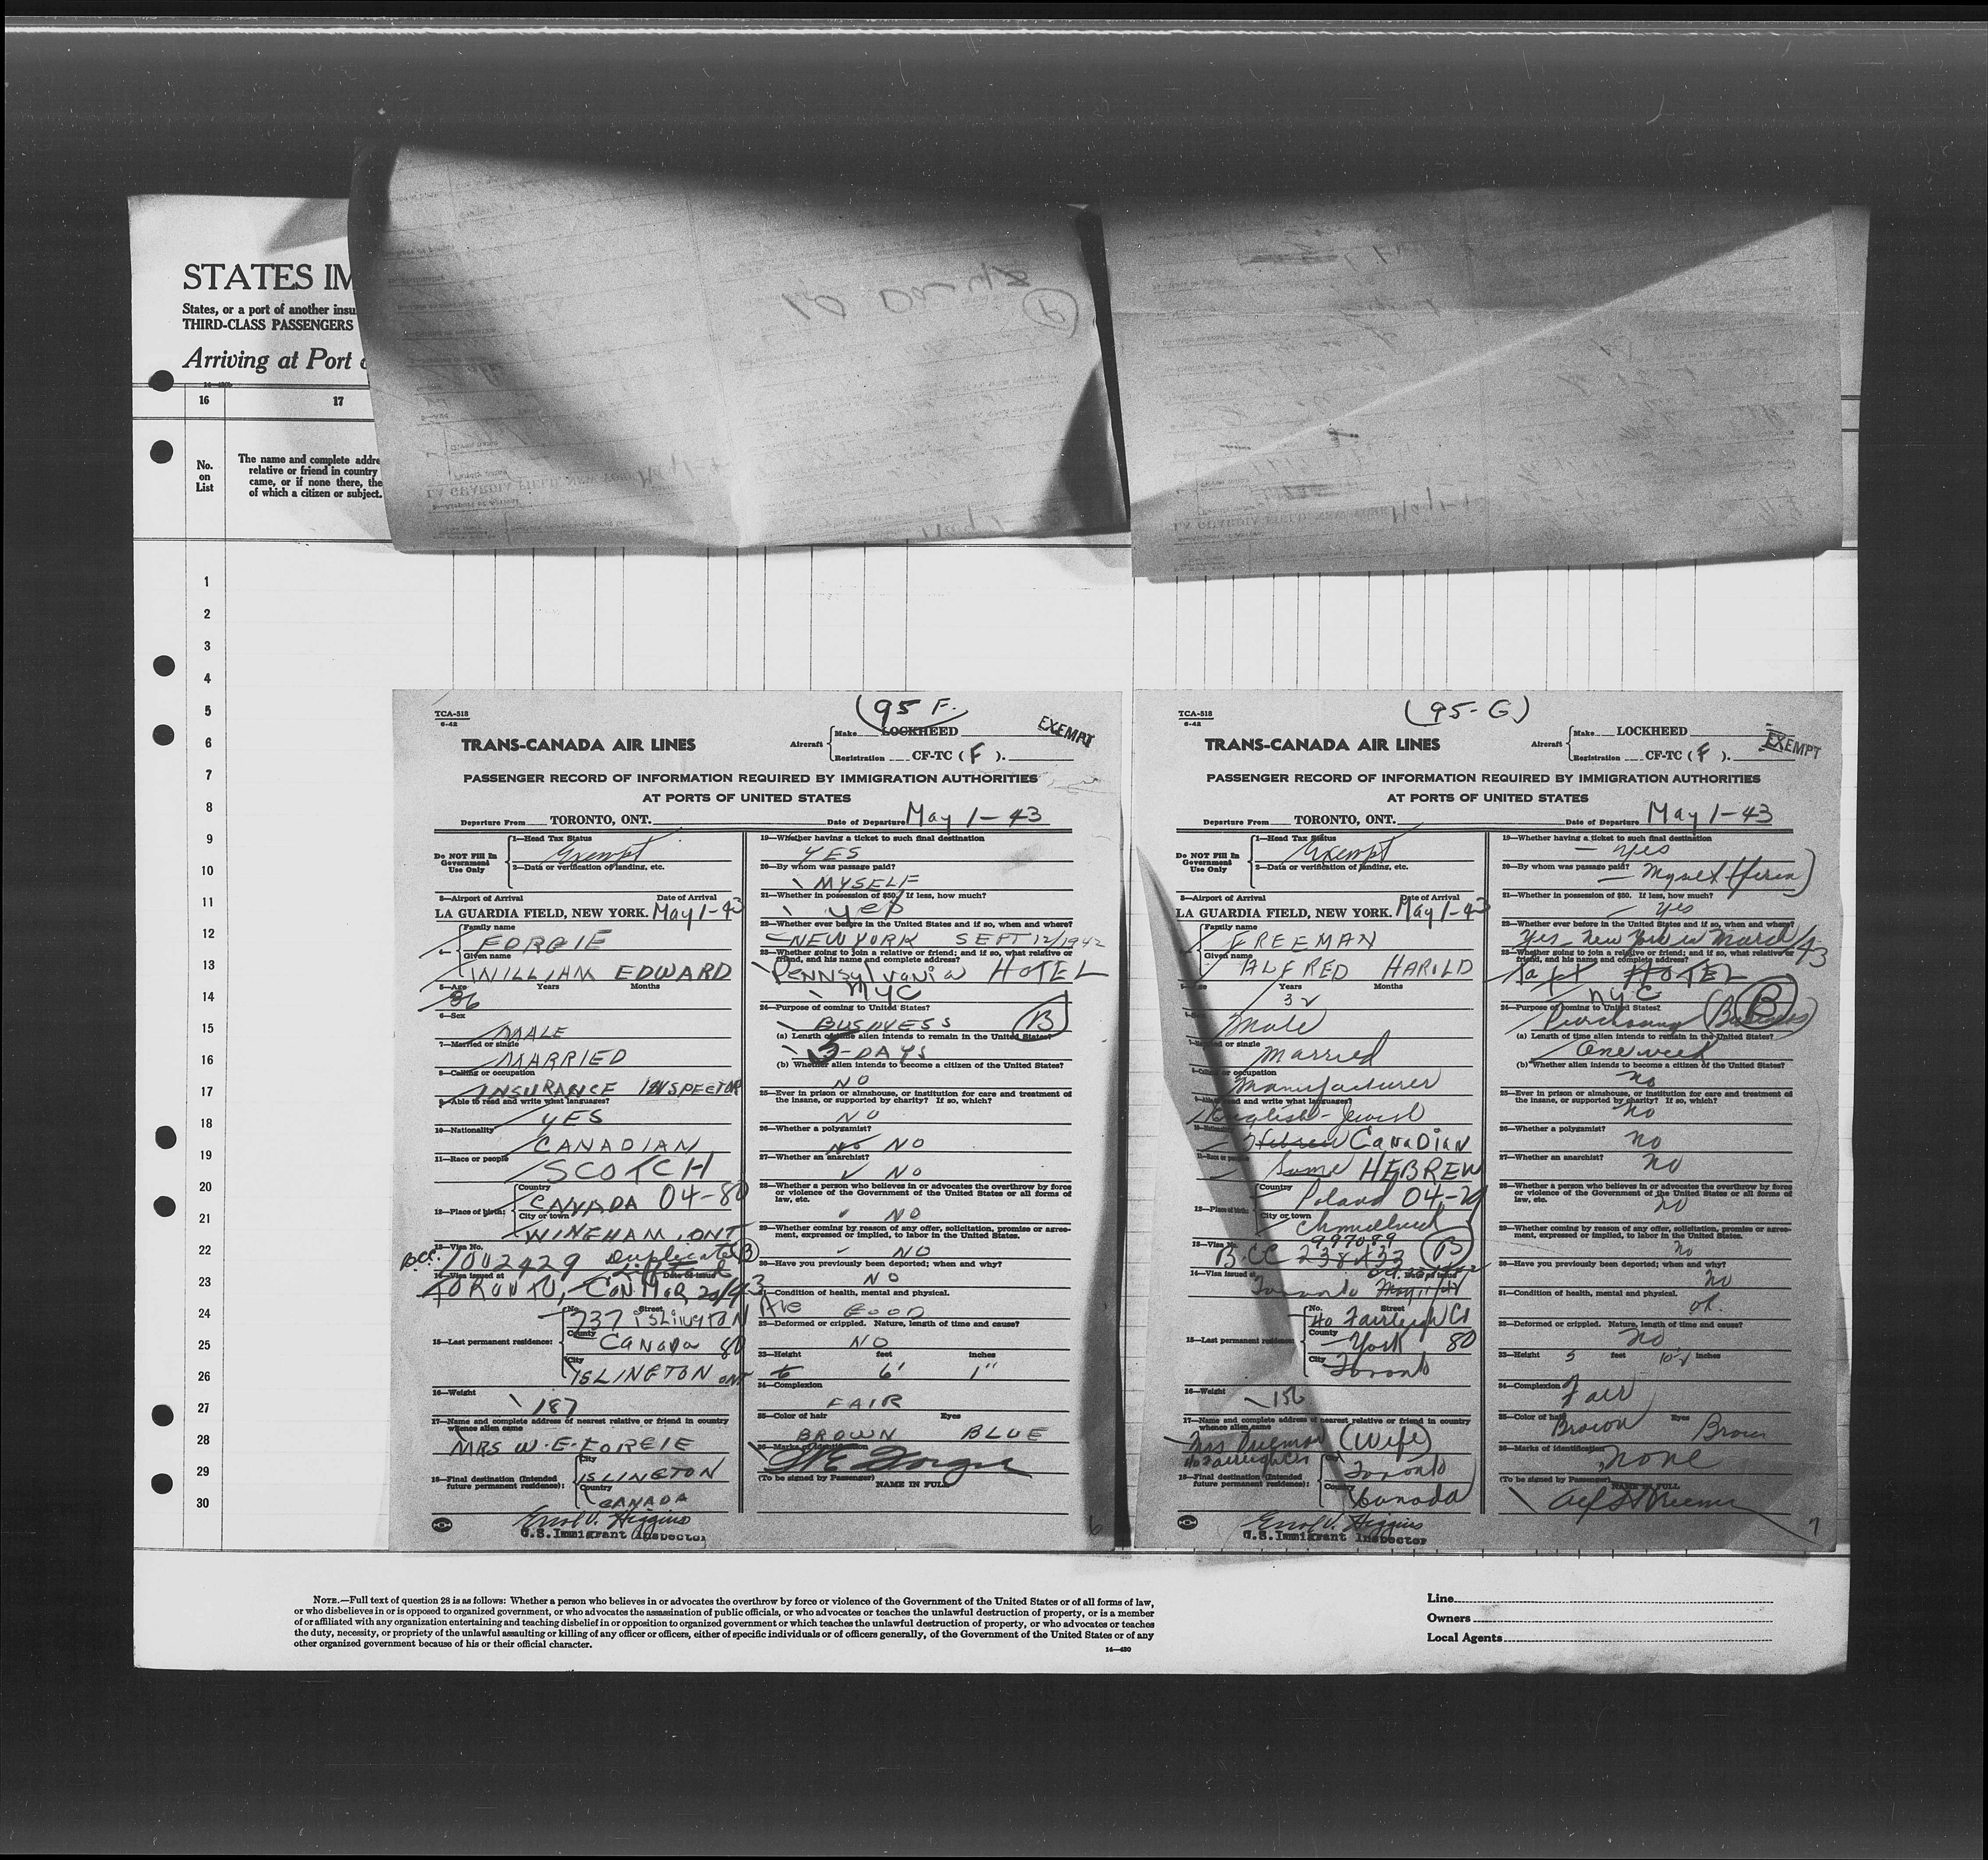 STATES IM
States, or a port of another insu
THIRD-CLASS PASSENGERS
Arriving at Port
16 17
No.
on
List
The name and complete addre
relative or friend in country
came, or if none there, the
of which a citizen or subject.
10 Days
1
2
3
4
5
6
7
8
9
10
11
12
13
14
15
16
17
18
19
20
21
22
23
24
25
26
27
28
29
30
(95 F.)
TCA-518
6-42
TRANS-CANADA AIR LINES
Aircraft
Make LOCKHEED
Registration CF-TC (F).
EXEMPT
PASSENGER RECORD OF INFORMATION REQUIRED BY IMMIGRATION AUTHORITIES
AT PORTS OF UNITED STATES
Departure From TORONTO, ONT. Date of Departure May 1-43
Do NOT Fill In
Government
Use Only
1—Head Tax Status
Exempt
2—Data or verification of landing, etc.
3—Airport of Arrival Date of Arrival
LA GUARDIA FIELD, NEW YORK. May 1-43
4—
Family name
FORGIE
Given name
WILLIAM EDWARD
5—Age Years Months
36
6—Sex
MALE
7—Married or single
MARRIED
8—Calling or occupation
INSURANCE INSPECTOR
9—Able to read and write what languages?
YES
10—Nationality
CANADIAN
11—Race or people
SCOTCH
12—Place of birth:
Country
CANADA 04-80
City or town
WINGHAM, ONT
13—Visa No.
BCC. 1002429 Duplicate B
14—Visa issued at Date of issue
TORONTO, CAN. MAR 20/43
15—Last permanent residence:
No. Street
737 ISLINGTON
County
CANADA 80
City
ISLINGTON ONT
16—Weight
187
17—Name and complete address of nearest relative or friend in country
whence alien came
MRS W.E. FORGIE
18—Final destination (Intended
future permanent residence):
City
ISLINGTON
Country
CANADA
Errol V. Higgins
U.S. Immigrant Inspector
19—Whether having a ticket to such final destination
YES
20—By whom was passage paid?
MYSELF
21—Whether in possession of $50. If less, how much?
yes
22—Whether ever before in the United States and if so, when and where?
NEW YORK SEPT 12/1942
23—Whether going to join a relative or friend; and if so, what relative or
friend, and his name and complete address?
Pennsylvania HOTEL
NYC
24—Purpose of coming to United States?
BUSINESS B
(a) Length of time alien intends to remain in the United States?
5-DAYS
(b) Whether alien intends to become a citizen of the United States?
NO
25—Ever in prison or almshouse, or institution for care and treatment of
the insane, or supported by charity? If so, which?
NO
26—Whether a polygamist?
No NO
27—Whether an anarchist?
NO
28—Whether a person who believes in or advocates the overthrow by force
or violence of the Government of the United States or all forms of
law, etc.
NO
29—Whether coming by reason of any offer, solicitation, promise or agree-
ment, expressed or implied, to labor in the United States.
NO
30—Have you previously been deported; when and why?
NO
31—Condition of health, mental and physical.
GOOD
32—Deformed or crippled. Nature, length of time and cause?
NO
33—Height feet inches
6 6' 1"
34—Complexion
FAIR
35—Color of hair Eyes
BROWN BLUE
36—Marks of identification
W E Forgie
(To be signed by Passenger) NAME IN FULL
6
(95-G)
TCA-518
6-42
TRANS-CANADA AIR LINES
Aircraft
Make LOCKHEED
Registration CF-TC (F).
EXEMPT
PASSENGER RECORD OF INFORMATION REQUIRED BY IMMIGRATION AUTHORITIES
AT PORTS OF UNITED STATES
Departure From TORONTO, ONT. Date of Departure May 1-43
Do NOT Fill In
Government
Use Only
1—Head Tax Status
Exempt
2—Data or verification of landing, etc.
3—Airport of Arrival Date of Arrival
LA GUARDIA FIELD, NEW YORK. May 1-43
Family name
FREEMAN
Given name
ALFRED HAROLD
Years Months
32
Male
or single
Married
or occupation
Manufacturer
and write what languages?
English-Jewish
Hebrew CANADIAN
Same HEBREW
12—Place of birth:
Country
Poland 04-29
City or town
13—Visa No. 997089
B.CC 238433 B
14—Visa issued at Date of issue
Toronto
15—Last permanent residence:
No. Street
40 Fairleigh Cr
County
York 80
City
Toronto
16—Weight
156
17—Name and complete address of nearest relative or friend in country
whence alien came
Mrs Freeman (Wife)
40 Fairleigh Cr
18—Final destination (Intended
future permanent residence):
City
Toronto
Country
Canada
Errol V. Higgins
U.S. Immigrant Inspector
19—Whether having a ticket to such final destination
yes
20—By whom was passage paid?
Myself (firm)
21—Whether in possession of $50. If less, how much?
yes
22—Whether ever before in the United States and if so, when and where?
Yes- New York in March/43
23—Whether going to join a relative or friend; and if so, what relative or
friend, and his name and complete address?
Taft HOTEL
NYC
24—Purpose of coming to United States?
Purchasing (Business) B
(a) Length of time alien intends to remain in the United States?
One week
(b) Whether alien intends to become a citizen of the United States?
no
25—Ever in prison or almshouse, or institution for care and treatment of
the insane, or supported by charity? If so, which?
no
26—Whether a polygamist?
no
27—Whether an anarchist?
no
28—Whether a person who believes in or advocates the overthrow by force
or violence of the Government of the United States or all forms of
law, etc.
no
29—Whether coming by reason of any offer, solicitation, promise or agree-
ment, expressed or implied, to labor in the United States.
no
30—Have you previously been deported; when and why?
no
31—Condition of health, mental and physical.
ok.
32—Deformed or crippled. Nature, length of time and cause?
no
33—Height 5 feet 10½ inches
34—Complexion
Fair
35—Color of hair Eyes
Brown Brown
36—Marks of identification
none
(To be signed by Passenger) NAME IN FULL
Alf H Freeman
7
NOTE.—Full text of question 28 is as follows: Whether a person who believes in or advocates the overthrow by force or violence of the Government of the United States or of all forms of law,
or who disbelieves in or is opposed to organized government, or who advocates the assassination of public officials, or who advocates or teaches the unlawful destruction of property, or is a member
of or affiliated with any organization entertaining and teaching disbelief in or opposition to organized government or which teaches the unlawful destruction of property, or who advocates or teaches
the duty, necessity, or propriety of the unlawful assaulting or killing of any officer or officers, either of specific individuals or of officers generally, of the Government of the United States or of any
other organized government because of his or their official character.
14—430
Line
Owners
Local Agents